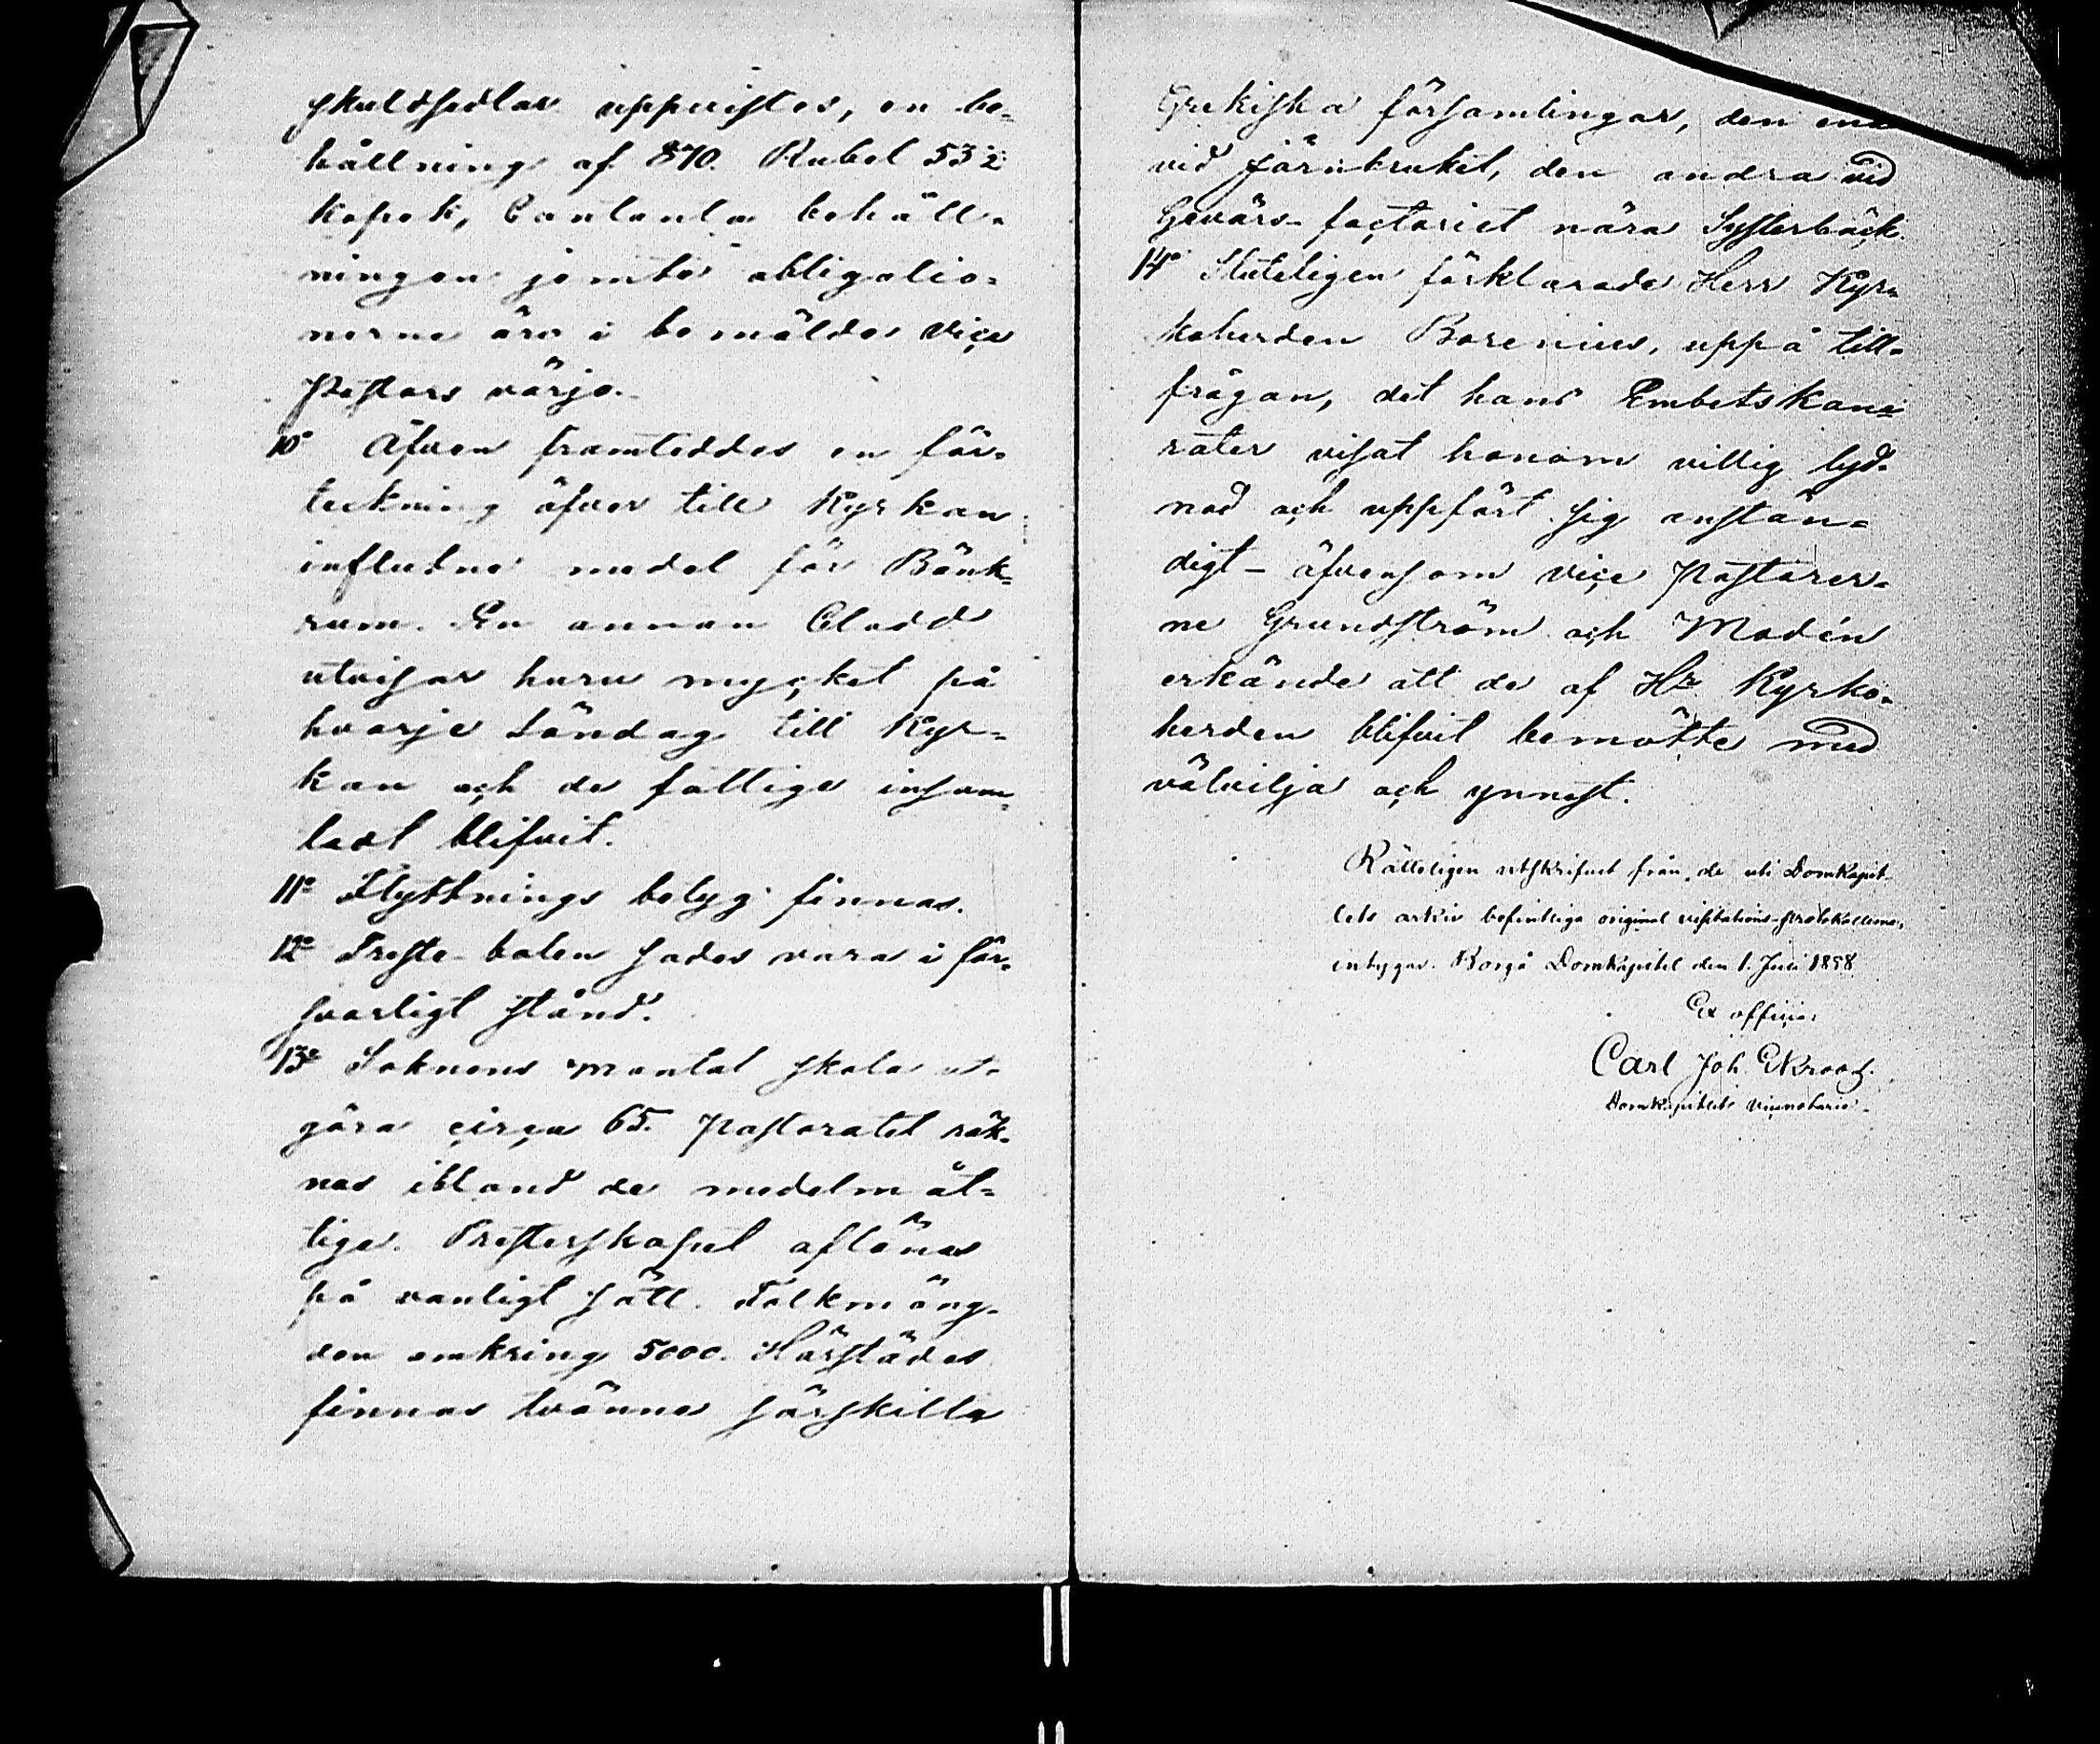 skuldsedlar uppvistes, en be-
hållning af 870. Rubel 53½
kopek, Contanta behåll-
ningen jemte obligatio-
nerne äro i bemälde vice
Pastors värjo.
10o Äfven framteddes en för-
teckning öfver till Kyrkan
influtne medel för Bänk-
rum. En annan Cladd
utvisar huru mycket på
hvarje Söndag till Kyr-
kan och de fattige insam-
ladt blifvit.
11o Flyttnings betyg finnas.
12o Preste-bolen sades vara i för-
svarligt stånd.
13o Soknens mantal skola ut-
göra circa 65. Pastoratet räk-
nas ibland de medelmåt-
tige. Presterskapet aflönas
på vanligt sätt. Folkmäng-
den omkring 5000. Härstädes
finnas tvänne särskilta
Grekiska församlingar, den ena
vid järnbruket, den andra vid
Gevärs-factoriet nära Systerbäck.
14o Sluteligen förklarade Herr Kyr-
koherden Borenius, uppå till-
frågan, det hans Embetskam-
rater visat honom villig lyd-
nad och uppfört sig anstän-
digt - äfvensom vice Pastorer-
ne Grundström och Modén
erkände att de af Hr Kyrko-
herden blifvit bemötte med
välvilja och ynnest.
Rätteligen utskrifvet från de uti Domkapit-
lets arkiv befintliga original visitations-protokollerna,
intygar. Borgå Domkapitel den 1. Juli 1898.
Ex officio:
Carl Joh. Ekroos.
Domkapitlets vicenotarie.